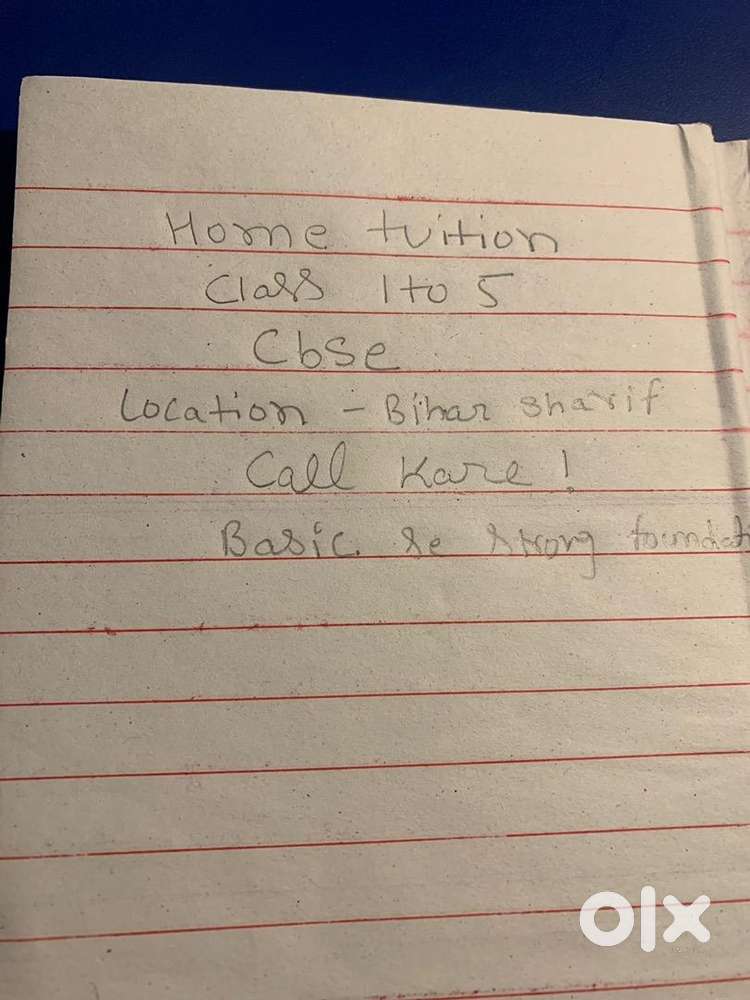 Home tuition
Class 1 to 5
Cbse
Location - Bihar sharif
Call Kare !
Basic se strong foundati
olx